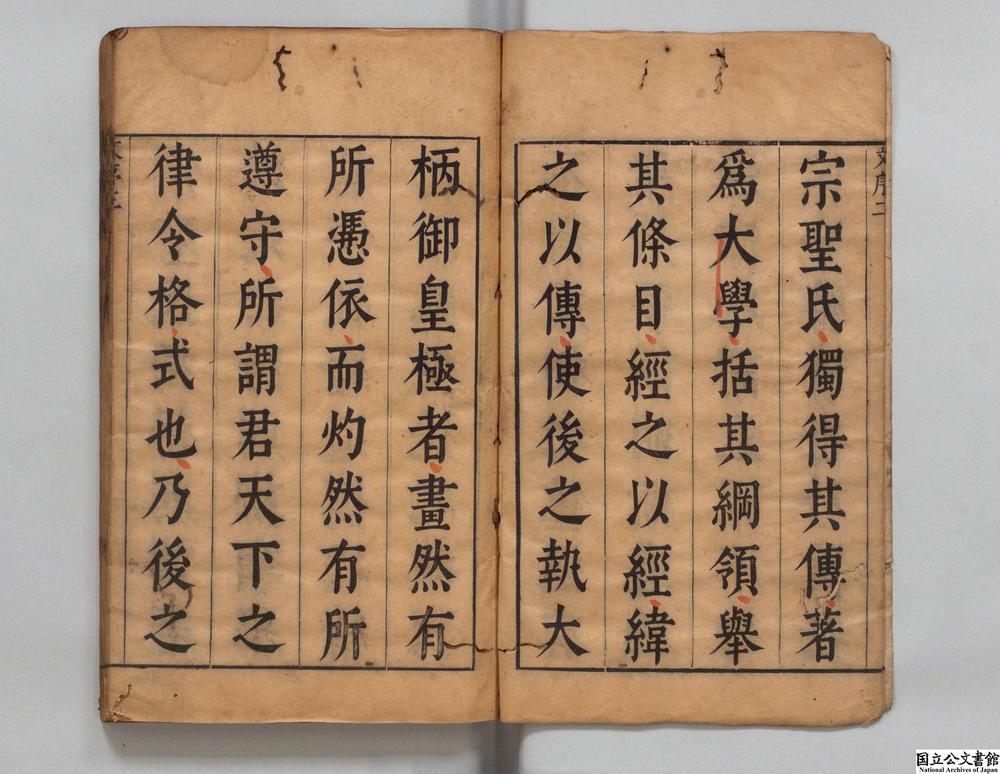 宗聖氏獨得其傳著
爲大學括其綱領舉
其條目經之以經緯
之以傳使後之執大
柄御皇極者畫然有
所憑依而灼然有所
遵守所謂君天下之
律令格式也乃後之
国立公文書館
National Archives of Japan